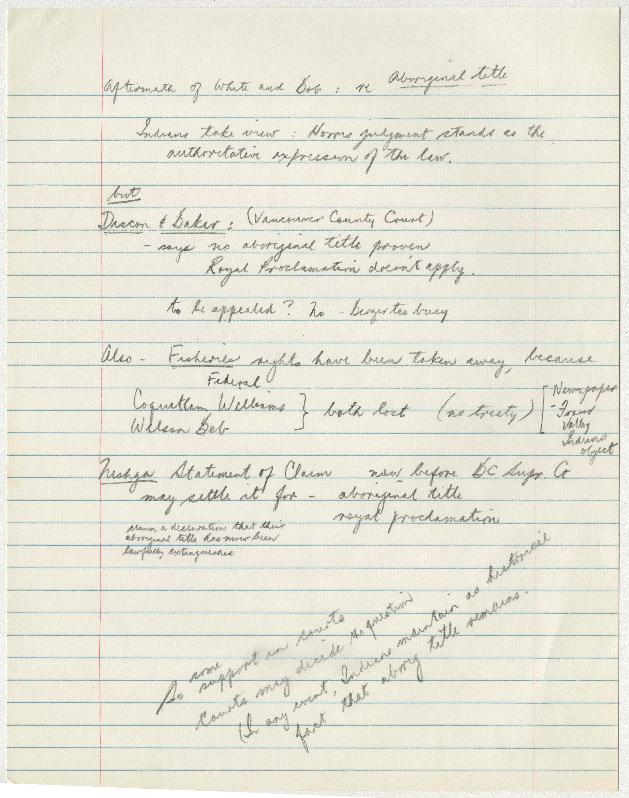 Aftermath of White and Bob : re Aboriginal title
Indians take view : Norris judgment stands as the
authoritative expression of the law.
but
Discon & Baker : (Vancouver County Court)
- says no aboriginal title proven
Royal Proclamation doesn't apply.
to be appealed? No - Berger too busy
Also - Fisheries rights have been taken away, because
Federal
Coquitlam Williams } both lost (no treaty) [ Newspaper
Wilson Bob
- Fraser
Valley
Indians
object
Nishga Statement of Claim now before BC Supr. Ct
may settle it for - aboriginal title
royal proclamation
claim a declaration that their
aboriginal title has never been
lawfully extinguished
So some support in courts
Courts may decide the question
(In any event, Indians maintain as historical
fact that aborig title remains.